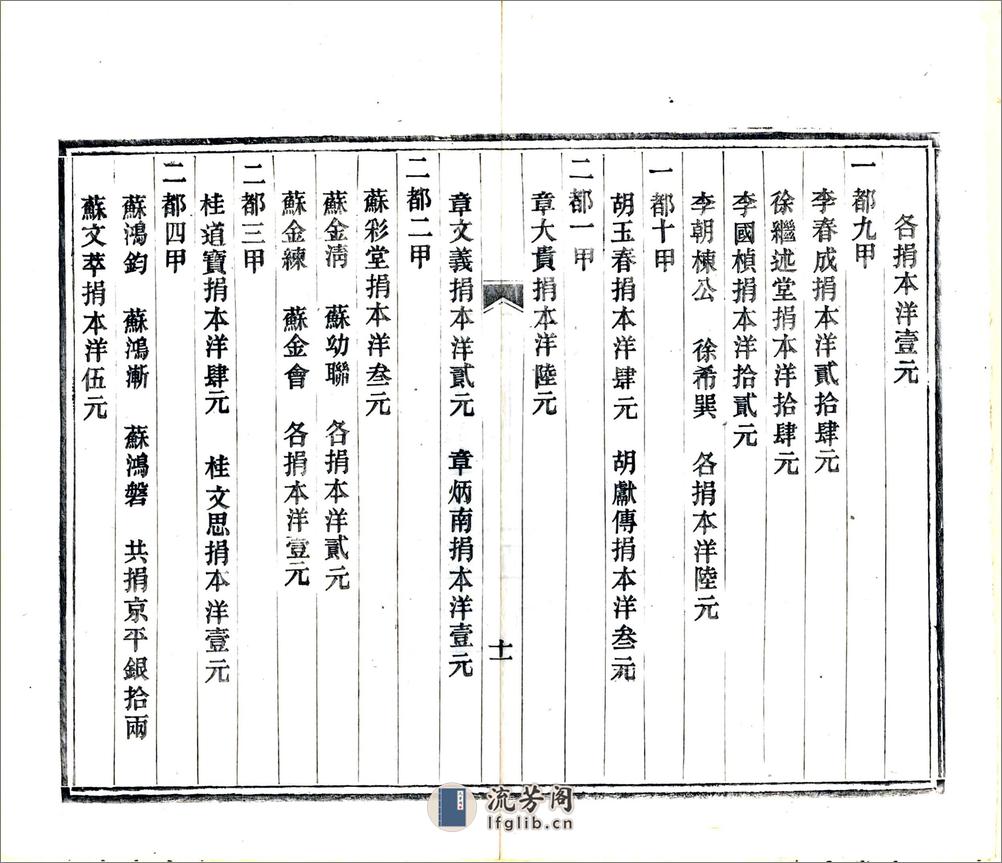 各捐本洋壹元
一都九甲
李春成捐本洋貳拾肆元
徐繼述堂捐本洋拾肆元
李國楨捐本洋拾貳元
李朝棟公　徐希巽　各捐本洋陸元
一都十甲
胡玉春捐本洋肆元　胡獻傳捐本洋叁元
二都一甲
章大貴捐本洋陸元
十一
章文義捐本洋貳元　章炳南捐本洋壹元
二都二甲
蘇彩堂捐本洋叁元
蘇金淸　蘇幼聯　各捐本洋貳元
蘇金練　蘇金會　各捐本洋壹元
二都三甲
桂道寶捐本洋肆元　桂文思捐本洋壹元
二都四甲
蘇鴻鈞　蘇鴻漸　蘇鴻磐　共捐京平銀拾兩
蘇文萃捐本洋伍元
流芳阁
lfglib.cn